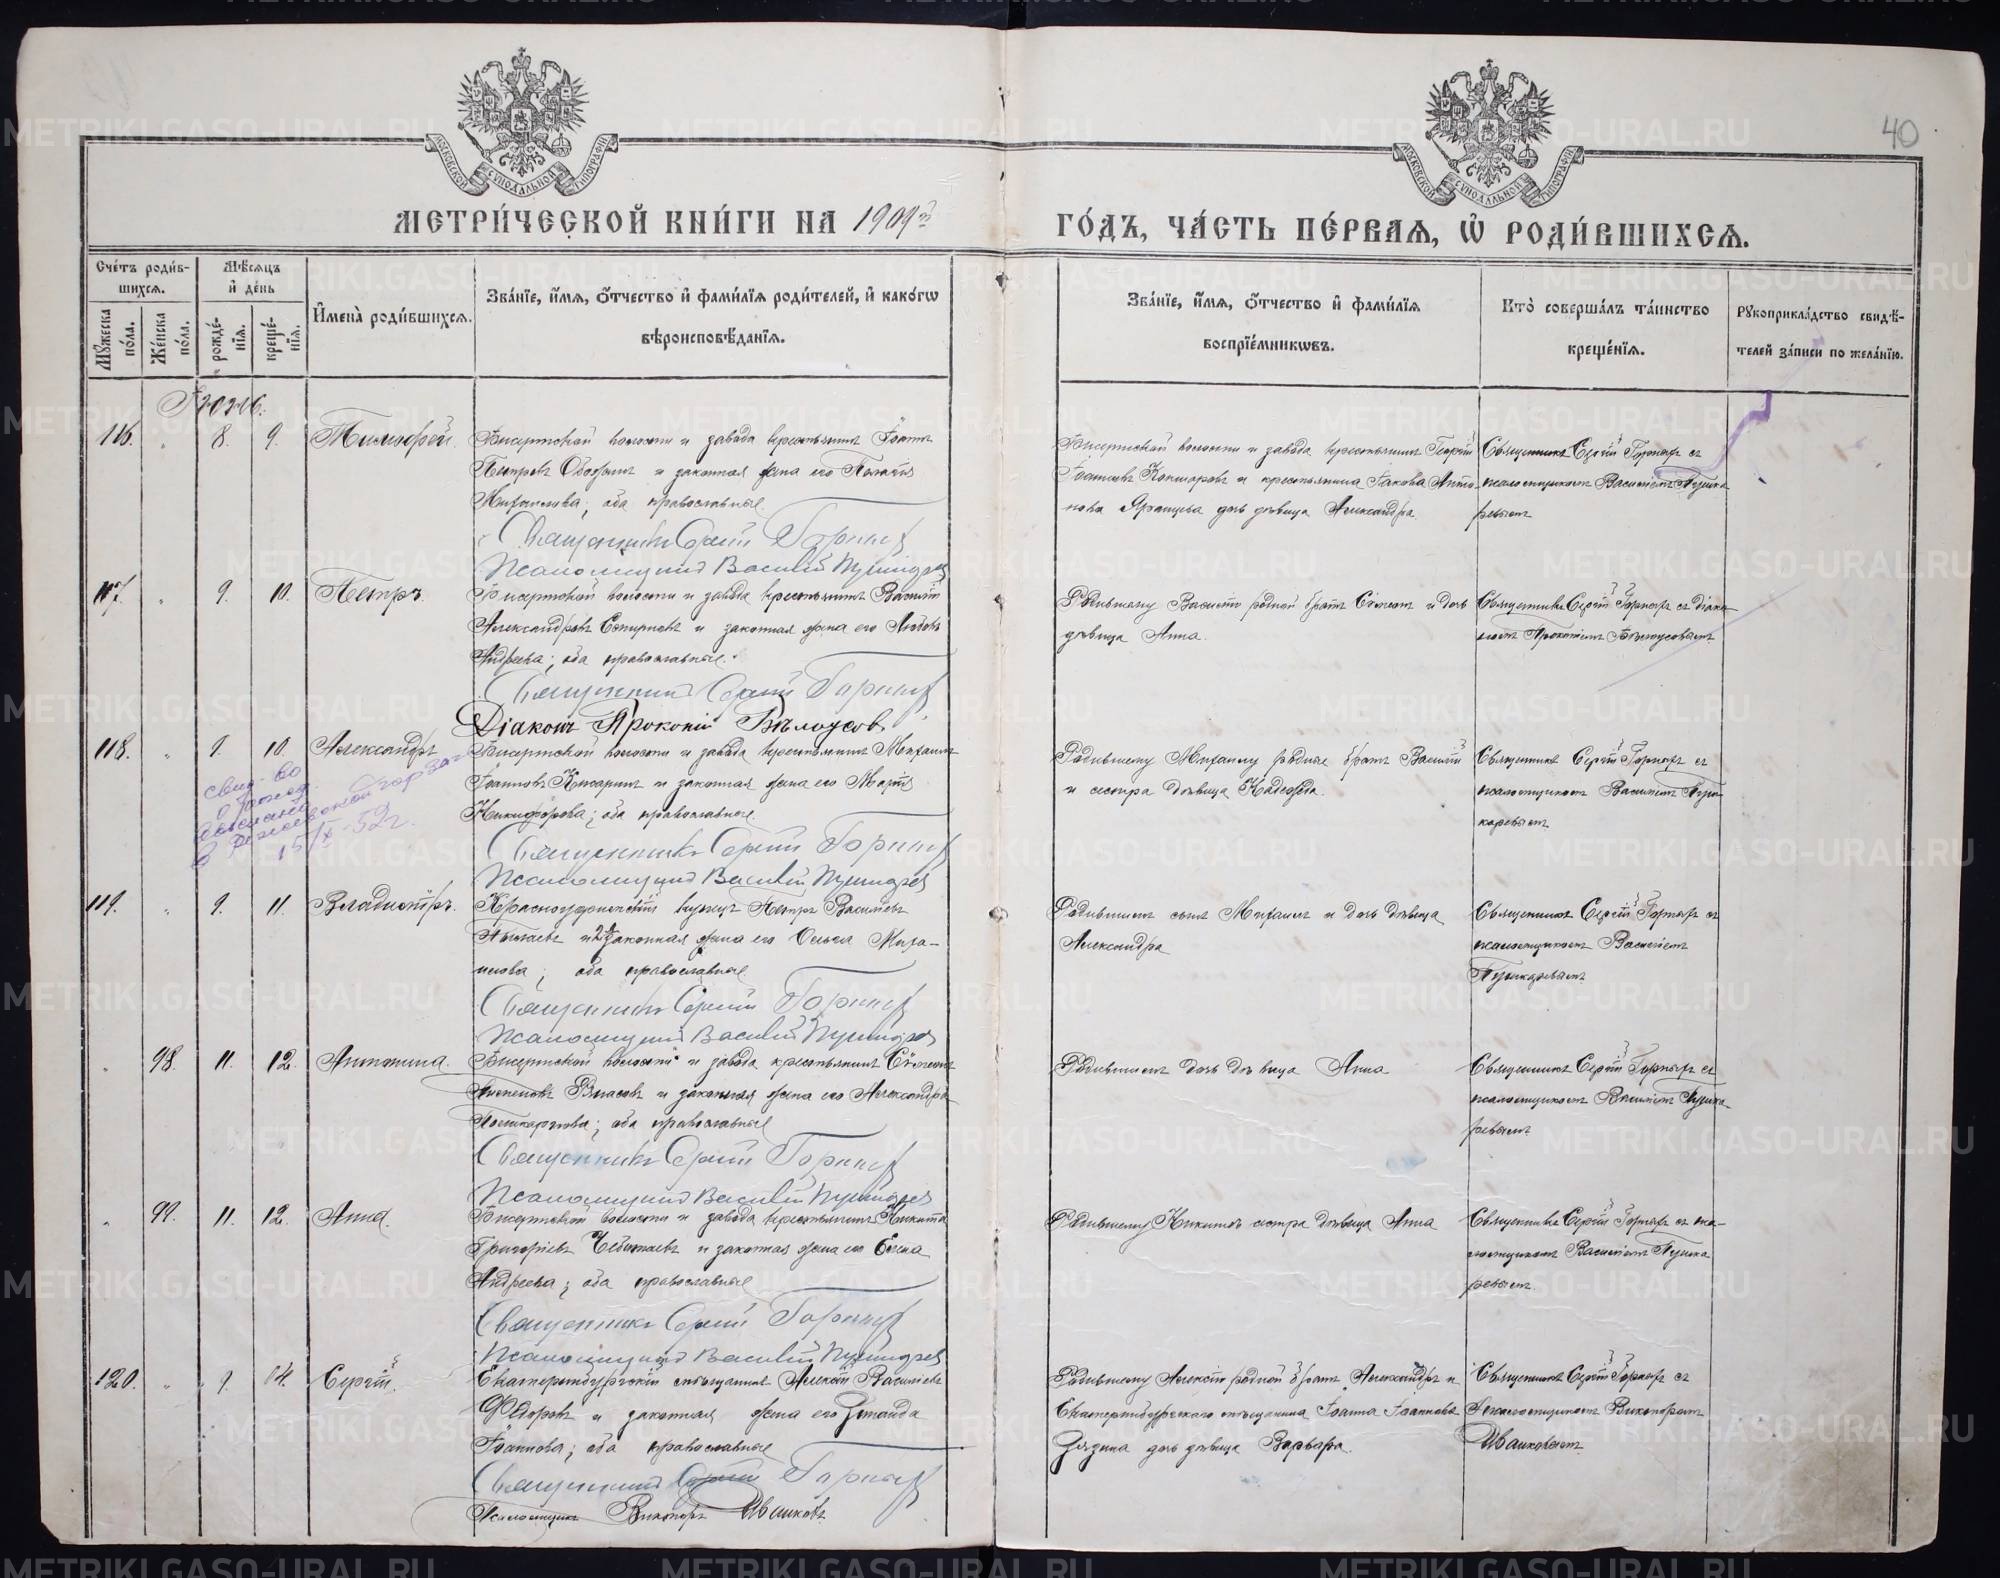 40
МОСКОВСКОЙ СУНОДАЛЬНОЙ ТИПОГРАФІИ
МОСКОВСКОЙ СУНОДАЛЬНОЙ ТИПОГРАФІИ
МЕТРИ́ЧЕСКОЙ КНИ́ГИ НА 1909й
ГО́ДЪ, ЧА́СТЬ ПЕ́РВАѦ, Ѡ҆ РОДИ́ВШИХСѦ.
Сче́тъ роди́в-
шихсѧ.
Мѣ́сѧцъ
и҆ де́нь
Мꙋ́жеска по́ла.
Же́нска по́ла.
рожде́-
нїѧ.
креще́-
нїѧ.
И҆мена̀ роди́вшихсѧ.
Зва́нїе, и҆́мѧ, ѻ҆́тчество и҆ фами́лїѧ роди́телей, и҆ како́гѡ
вѣроисповѣ́данїѧ.
Зва́нїе, и҆́мѧ, ѻ҆́тчество и҆ фами́лїѧ
воспрїе́мникѡвъ.
Кто̀ соверша́лъ та́инство
креще́нїѧ.
Рꙋкоприкла́дство свидѣ́-
телей за́писи по жела́нїю.
116. 8. 9. Тимофей.
Бисертской волости и завода крестьянинъ Іоаннъ
Петровъ и законная жена его Пелагія
Михаилова; оба православные.
Священникъ Сергій Горныхъ
Псаломщикъ Василій Пушкарев
Бисертской волости и завода крестьянинъ Георгій
Іоанновъ и крестьянина Іакова Анто-
нова дочь дѣвица Александра.
Священникъ Сергій Горныхъ съ
псаломщикомъ Василіемъ Пушка
ревымъ
117. 9. 10. Петръ.
Бисертской волости и завода крестьянинъ Василій
Александровъ и законная жена его Любовь
Андреева; оба православные.
Священникъ Сергій Горныхъ
Діаконъ Прокопій Бѣлоусов
Родившему Василію родной братъ Сѵмеонъ и дочь
дѣвица Анна.
Священникъ Сергій Горныхъ съ діако
номъ Прокопіемъ Бѣлоусовымъ
118. 9. 10. Александръ
Бисертской волости и завода крестьянинъ Михаилъ
Іоанновъ и законная жена его Марія
Никифорова; оба православные.
Священникъ Сергій Горныхъ
Псаломщикъ Василій Пушкарев
Родившему Михаилу родные братъ Василій
и сестра дѣвица Надежда.
Священникъ Сергій Горныхъ съ
псаломщикомъ Василіемъ Пуш
каревымъ
свид-во
о рожд.
в загс
15/X-52г.
119. 9. 11. Владиміръ.
Красноуфимскій купецъ Петръ Василіевъ
и 2я законная жена его Ольга Миха-
илова; оба православные.
Священникъ Сергій Горныхъ
Псаломщикъ Василій Пушкарев
Родившимъ сынъ Михаилъ и дочь дѣвица
Александра
Священникъ Сергій Горныхъ съ
псаломщикомъ Василіемъ
Пушкаревымъ
98. 11. 12. Антонина.
Бисертской волости и завода крестьянинъ Сѵмеонъ
Власовъ и законная жена его Александра
Поликарпова; оба православные
Священникъ Сергій Горныхъ
Псаломщикъ Василій Пушкарев
Родившимъ дочь дѣвица Анна
Священникъ Сергій Горныхъ съ
псаломщикомъ Василіемъ Пушка
ревымъ.
99. 11. 12. Анна.
Бисертской волости и завода крестьянинъ Никита
Григорьевъ и законная жена его Елена
Андреева; оба православные
Священникъ Сергій Горныхъ
Псаломщикъ Василій Пушкарев
Родившему Никитѣ сестра дѣвица Анна
Священникъ Сергій Горныхъ съ пса-
ломщикомъ Василіемъ Пушка
ревымъ.
120. 9. 14. Сергій.
Екатеринбургскій мѣщанинъ Алексій Василіевъ
Ѳедоровъ и законная жена его Зинаида
Іоаннова; оба православные
Священникъ Сергій Горныхъ
Псаломщикъ Викторъ Ивановъ
Родившему Алексію родной братъ Александръ и
Екатеринбургскаго мѣщанина Іоанна Іоаннова
дочь дѣвица Варвара.
Священникъ Сергій Горныхъ съ
псаломщикомъ Викторомъ